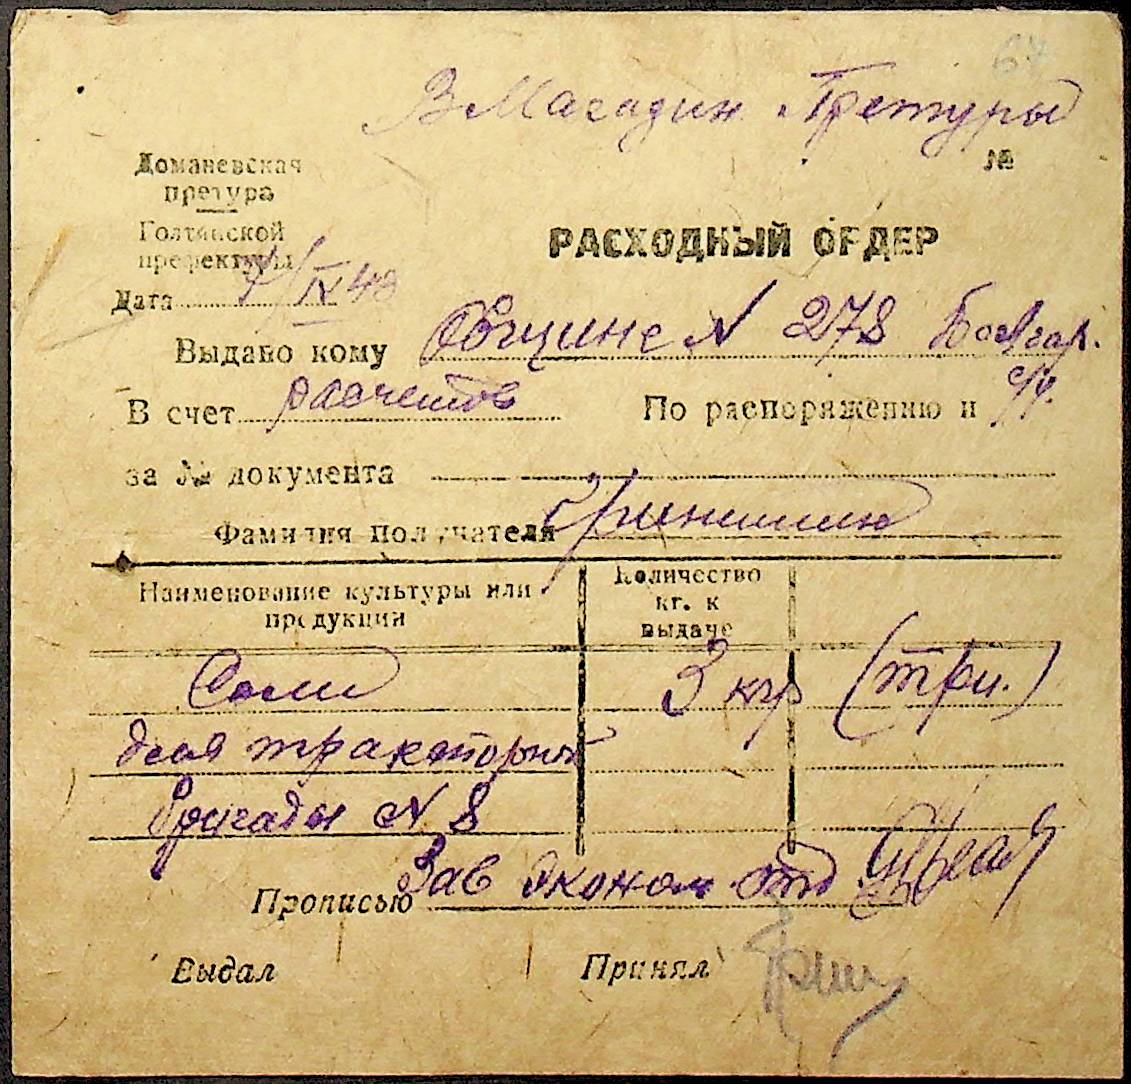 67
В Магазин Претуры
Доманевская
претура
№
Голтянской
префектуры
РАСХОДНЫЙ ОРДЕР
Дата 7/IX 43
Выдано кому Общине N 278 Болгар.
с/х.
В счет расчетов По распоряжению и
за № документа
Фамилия получателя
Наименование культуры или
продукции
Количество
кг. к
выдаче
Соли 3 кгр (три.)
для тракторной
бригады N 8
Зав эконом отд
Прописью
Выдал Принял